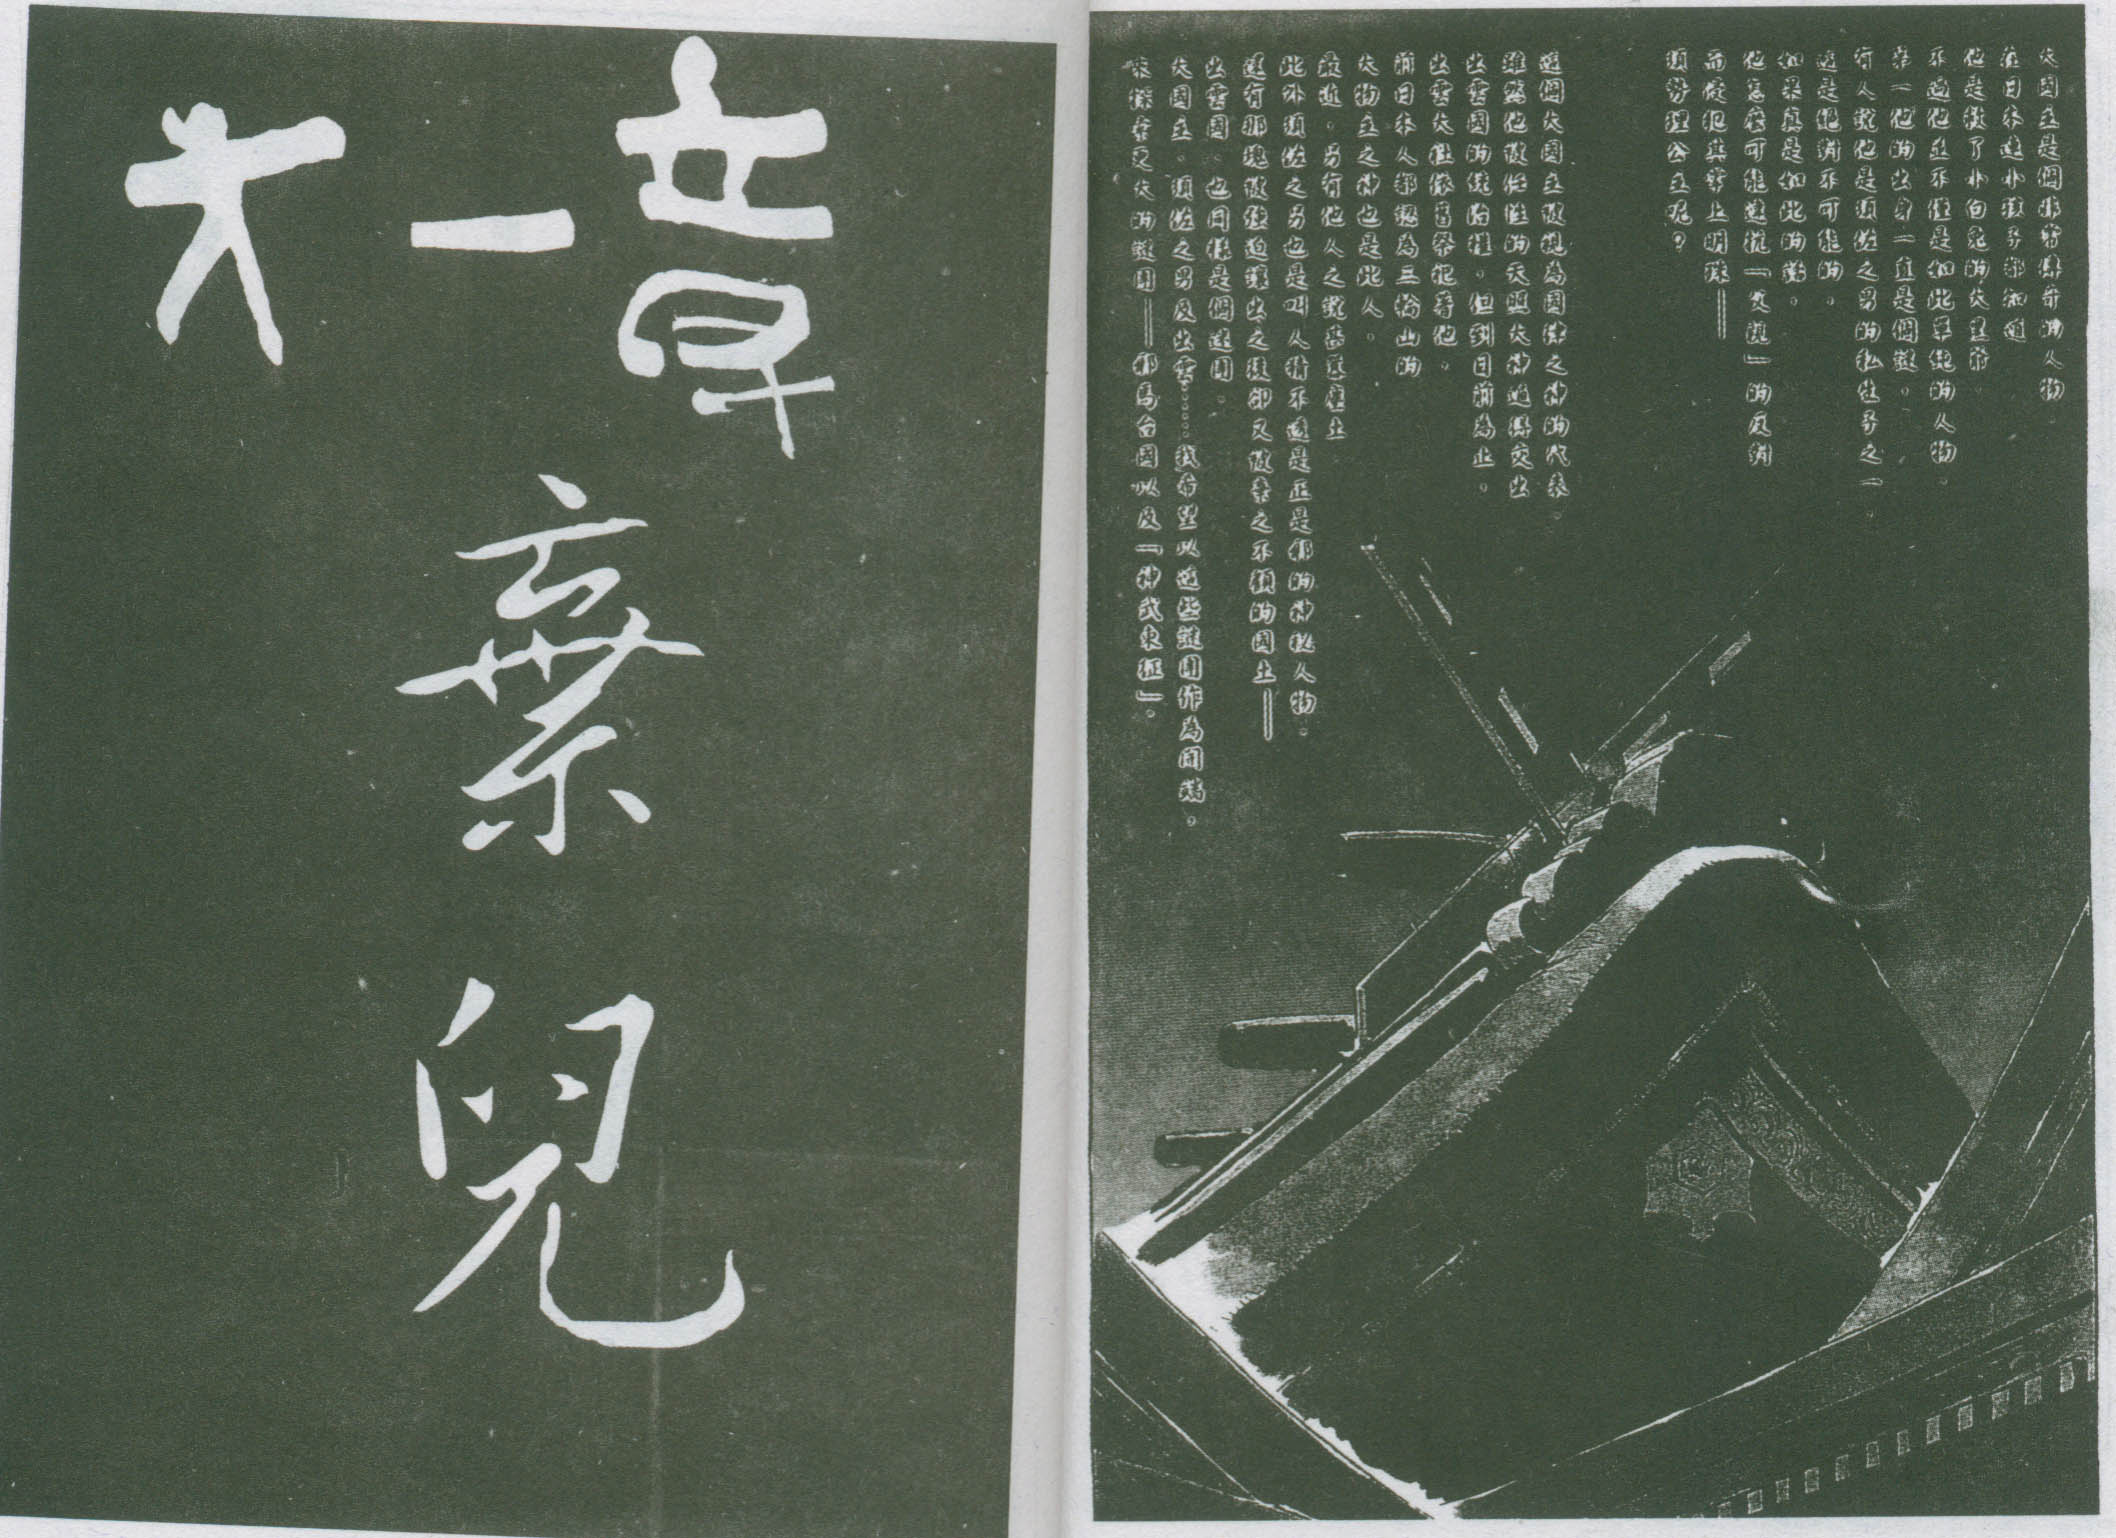 大國主是個非常傳奇的人物，
在日本連小孩子都知道
他是救了小白兔的大黑爺，
不過他並不僅是如此單純的人物。
第一他的出身一直是個謎。
有人說他是須佐之男的私生子之一，
這是絕對不可能的。
如果真是如此的話，
他怎麼可能違抗「父親」的反對
而侵犯其掌上明珠——
須勢理公主呢？
這個大國主被視為國津之神的代表，
雖然他被任性的天照大神迫得交出
出雲國的統治權，但到目前為止，
出雲大社依舊祭祀著他。
前日本人都認為三輪山的
大物主之神也是此人。
最近，另有他人之說甚囂塵上
此外須佐之男也是叫人猜不透是正是邪的神秘人物。
還有那塊被強迫讓出之後卻又被棄之不顧的國土——
出雲國，也同樣是個迷團。
大國主、須佐之男及出雲……我希望以這些謎團作為開端，
來探索更大的謎團——邪馬台國以及「神武東征」。
第一章
棄兒